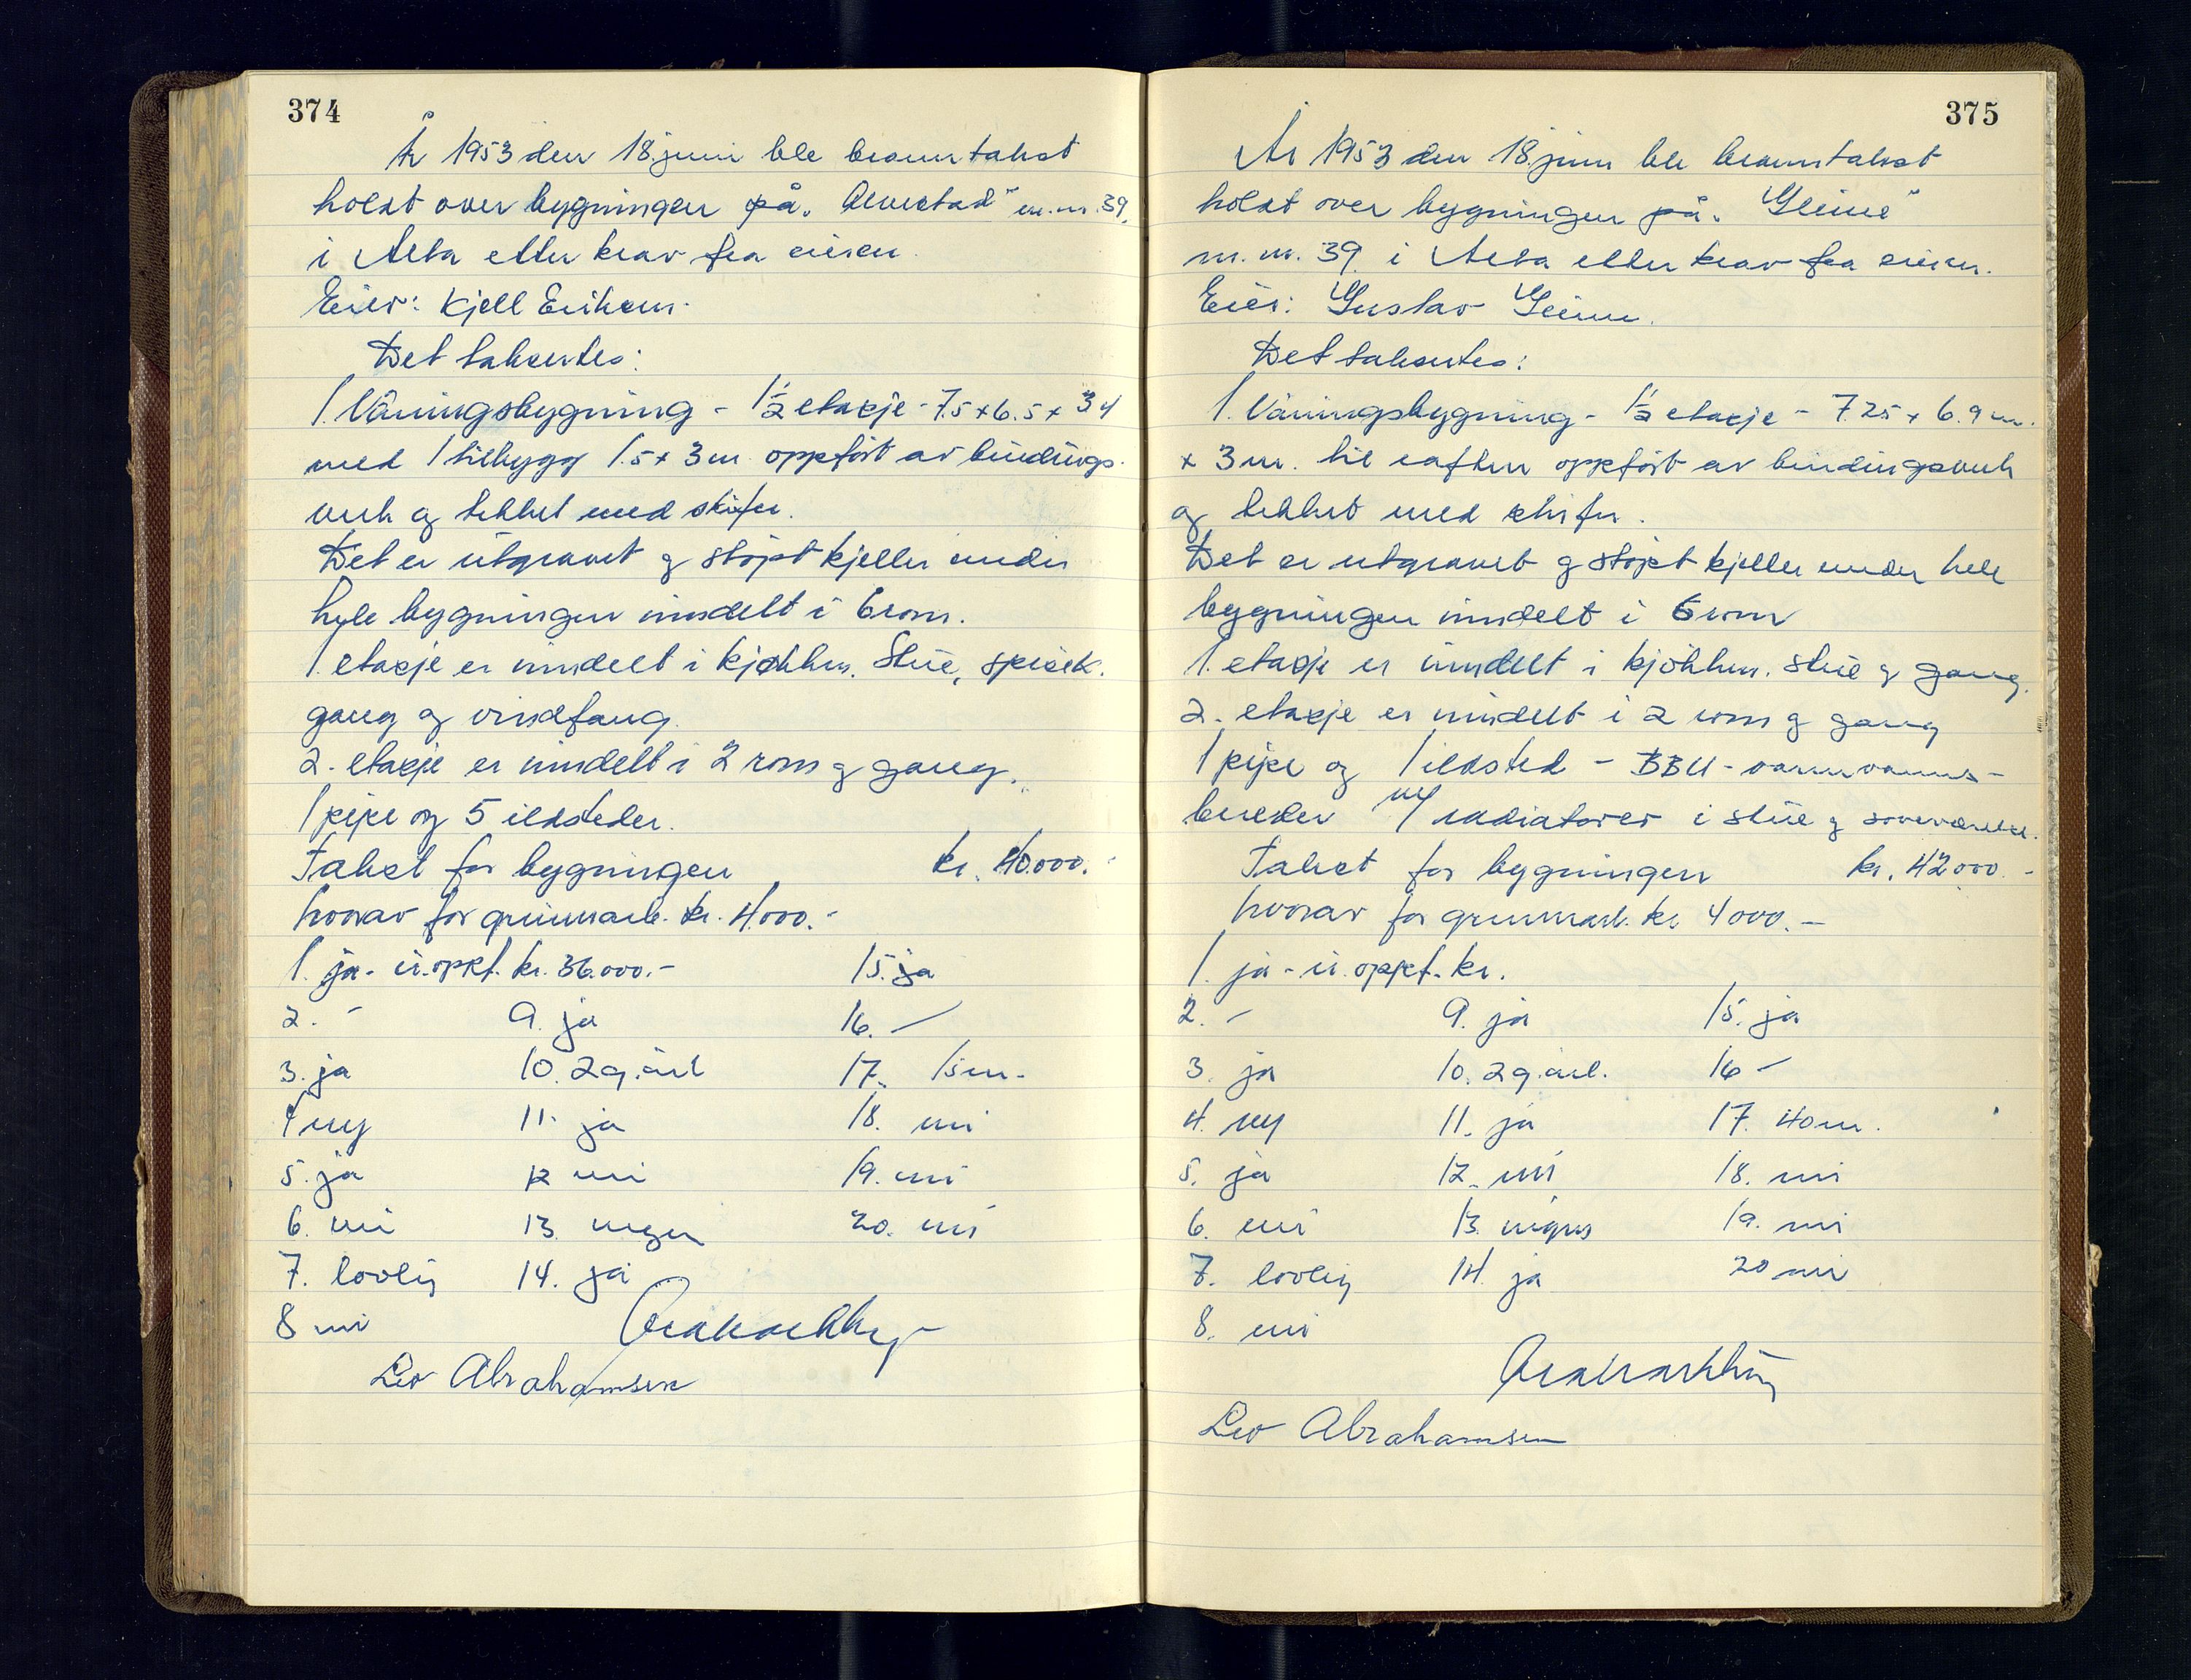 374
År 1953 den 18. juni ble branntakst
holdt over bygningen på "Alvestad" m.nr. 39.
i Alta etter krav fra eieren.
Eier: Kjell Eriksen.
Det taksertes:
1. Våningsbygning - 1½ etasje - 7.5 x 6.5 x 3.4
med 1 tilbygg 1.5 x 3 m oppført av bindings-
verk og tekket med skifer.
Det er utgravet og støpt kjeller under
hele bygningen inndelt i 6 rom.
1. etasje er inndelt i kjøkken. Stue, spisek.
gang og vindfang.
2. etasje er inndelt i 2 rom og gang.
1 pipe og 5 ildsteder.
Takst for bygningen kr. 40.000.-
hvorav for grunnarb. kr. 4.000.-
1. ja - i.oppf. kr. 36.000.- 15. ja
2. - 9. ja 16. -
3. ja 10. 2 g. årl 17. 15 m.
4 ny 11. ja 18. nei
5. ja 12 nei 19. nei
6. nei 13. ingen 20. nei
7. lovlig 14. ja
8 nei
Leo Abrahamsen
375
År 1953 den 18. juni ble branntakst
holdt over bygningen på
m.nr. 39. i Alta etter krav fra eieren.
Eier: Gustav
Det taksertes:
1. Våningsbygning - 1½ etasje - 7.25 x 6.9 m.
x 3 m. til raften oppført av bindingsverk
og tekket med skifer.
Det er utgravet og støpt kjeller under hele
bygningen inndelt i 6 rom
1. etasje er inndelt i kjøkken. stue og gang.
2. etasje er inndelt i 2 rom og gang
1 pipe og 1 ildsted - varmvanns-
bereder m/ radiatorer i stue og soveværelse.
Takst for bygningen kr. 42000.-
hvorav for grunnarb. kr 4000.-
1. ja - i. oppf. kr.
2. - 9. ja 15. ja
3. ja 10. 2 g. årl. 16 -
4. ny 11. ja 17. 40 m.
5. ja 12. nei 18. nei
6. nei 13. ingen 19. nei
7. lovlig 14. ja 20 nei
8. nei
Leo Abrahamsen